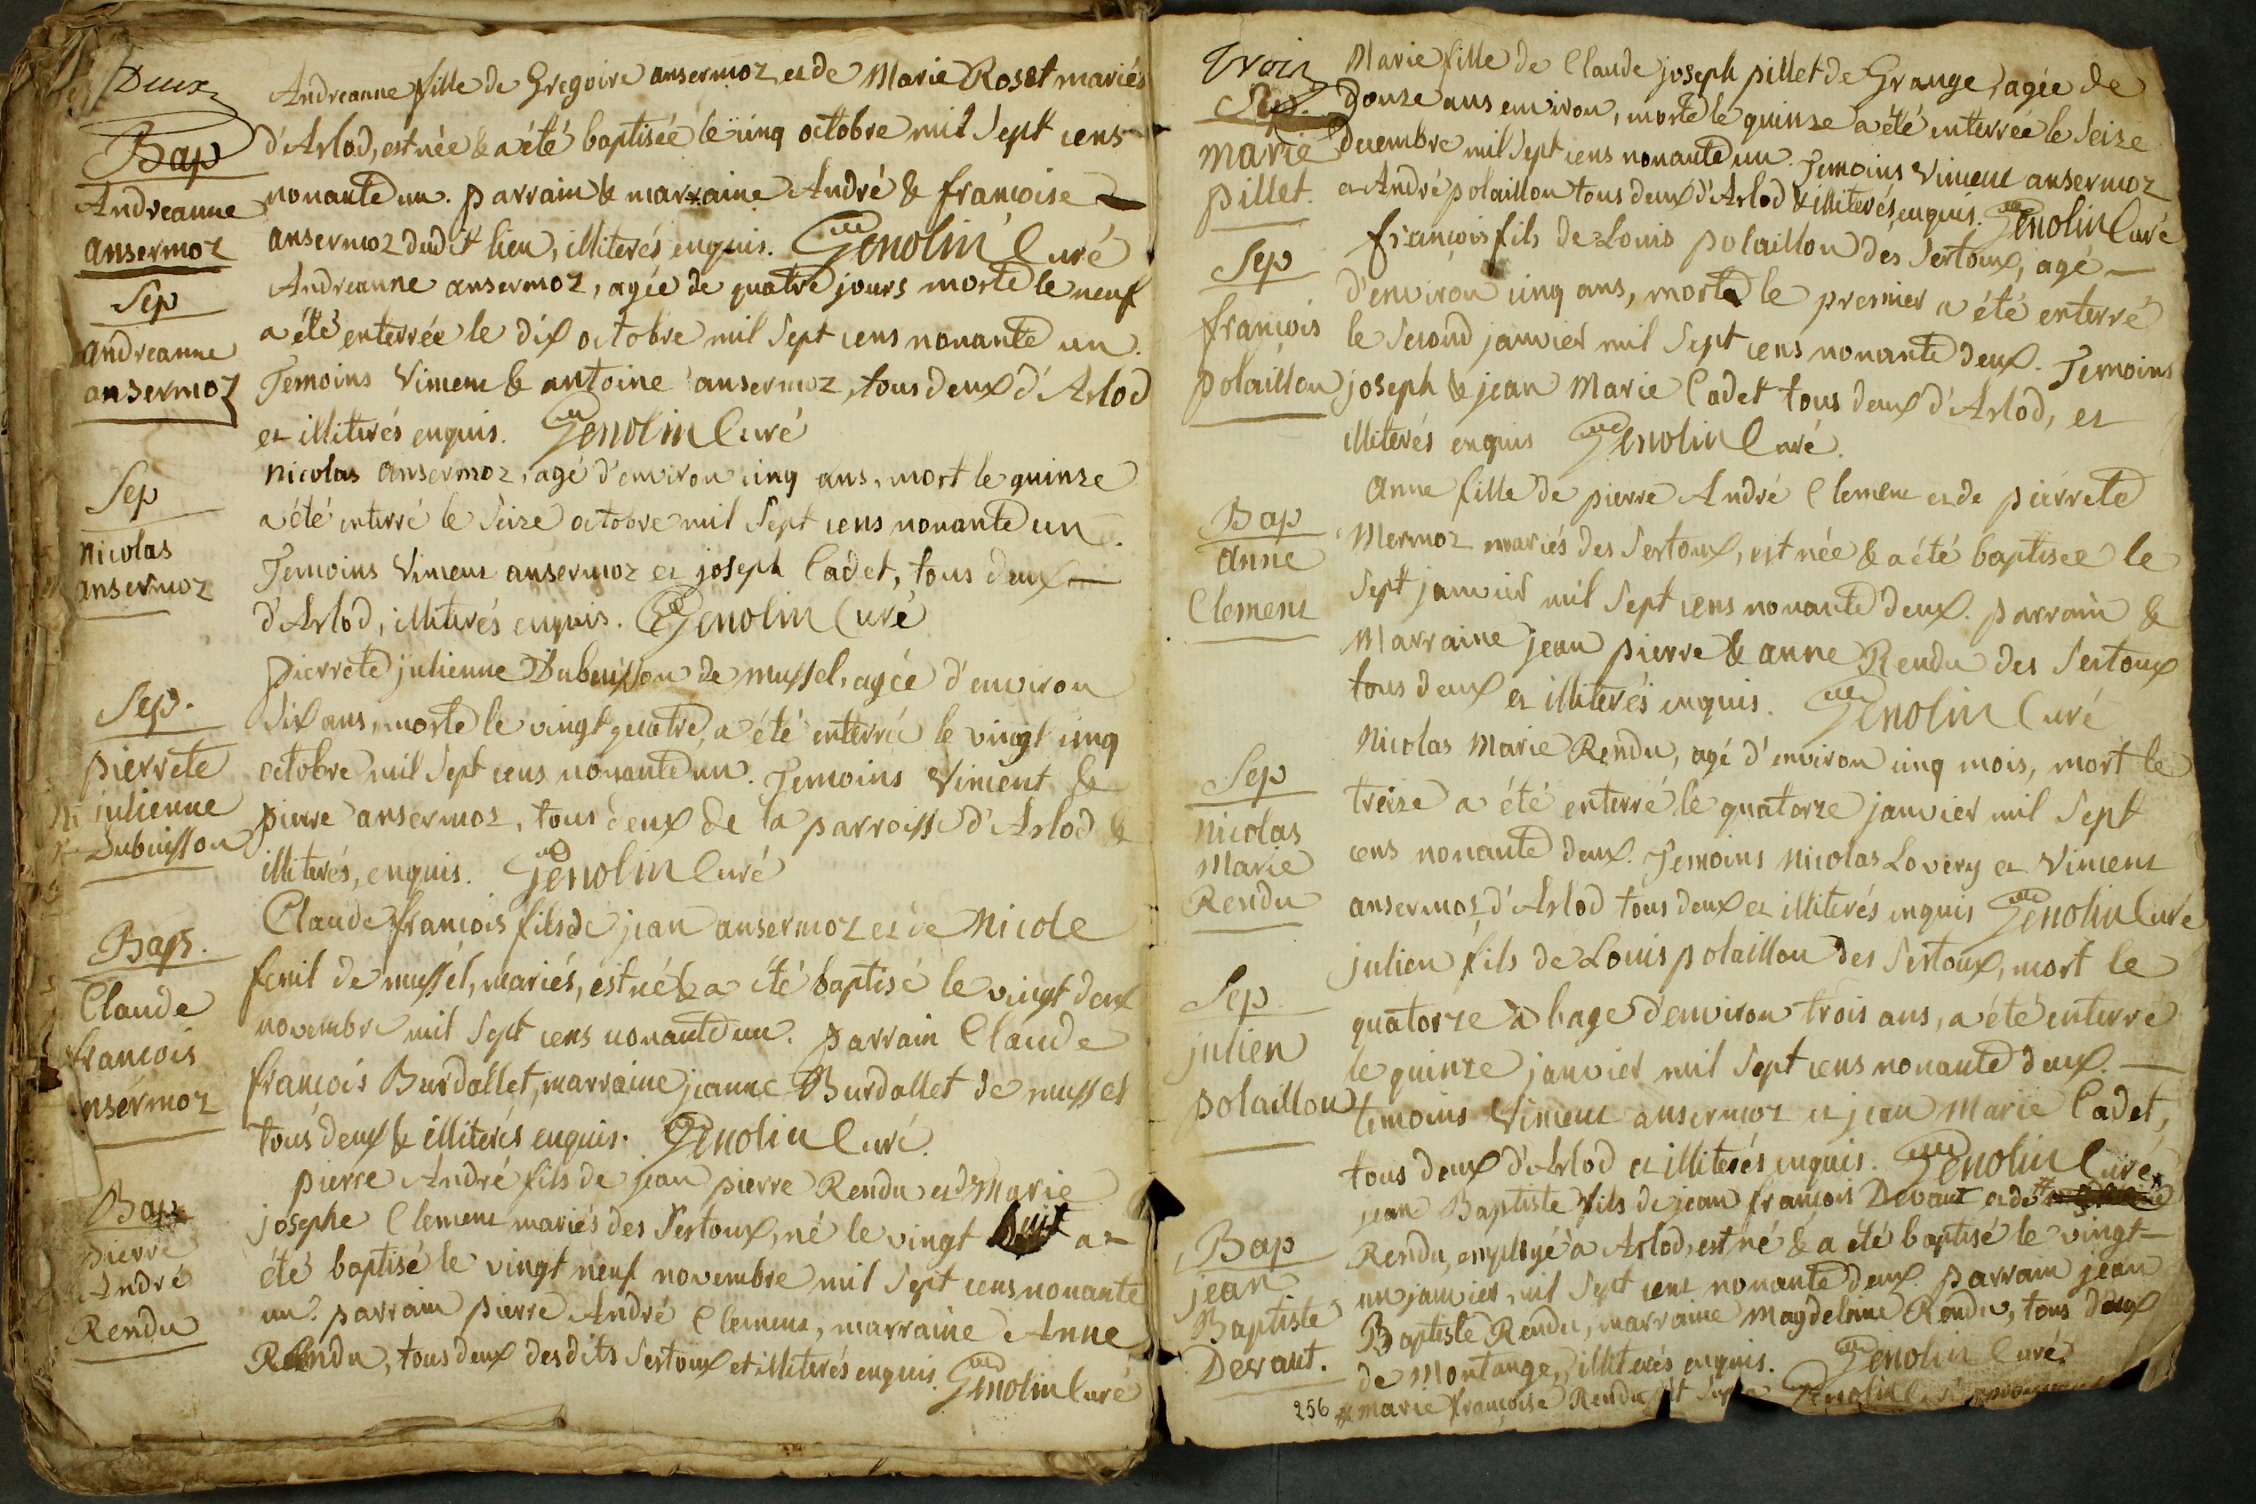 Deux
Bap
Andreanne
ansermoz
Andreanne fille de Gregoire ansermoz et de Marie Roset mariés
d'Arlod, est née & a été baptisée le cinq octobre mil Sept cens
nonante un. parrain & marraine André & françoise
ansermoz dudit lieu, illiterés enquis. Genolin Curé
Sep
andreanne
ansermoz
Andreanne ansermoz, agée de quatre jours morte le neuf
a été enterrée le dix octobre mil Sept cens nonante un.
Temoins Vincent & antoine ansermoz, tous deux d'Arlod
et illiterés enquis. Genolin Curé
Sep
nicolas
ansermoz
nicolas ansermoz, agé d'environ cinq ans, mort le quinze
a été enterré le Seize octobre mil Sept cens nonante un.
Temoins Vincent ansermoz et joseph Cadet, tous deux
d'Arlod, illiterés enquis. Genolin Curé
Sep.
pierrete
julienne
Dubuisson
pierrete julienne Dubuisson de mussel, agée d'environ
Six ans, morte le vingt quatre, a été enterrée le vingt cinq
octobre mil Sept cens nonante un. Temoins Vincent &
pierre ansermoz, tous deux de la parroisse d'Arlod &
illiterés, enquis. Genolin Curé
Bap.
Claude
francois
nsermoz
Claude francois fils de jean ansermoz et de Nicole
fenil de mussel, mariés, est né & a été baptisé le vingt deux
novembre mil Sept cens nonante un. parrain Claude
francois Burdallet, marraine jeanne Burdallet de mussel
tous deux & illiterés enquis. Genolin Curé.
Bap
pierre
André
Rendu
pierre André fils de jean pierre Rendu et de Marie
josephe Clement mariés des Sertoux, né le vingt huit a
été baptisé le vingt neuf novembre mil Sept cens nonante
un. parrain pierre André Clement, marraine Anne
Rendu, tous deux desdits Sertoux et illiterés enquis. Genolin Curé
Trois
Sep.
marie
pillet.
Marie fille de Claude joseph pillet de Grange, agée de
Douze ans environ, morte le quinze a été enterrée le Seize
decembre mil Sept cens nonante un. Temoins Vincent ansermoz
et André polaillon tous deux d'Arlod & illiterés, enquis. Genolin Curé
Sep
françois
polaillon
françois fils de Louis polaillon des Sertoux, agé
d'environ cinq ans, mort le premier a été enterré
le Second janvier mil Sept cens nonante deux. Temoins
joseph & jean Marie Cadet tous deux d'Arlod, et
illiterés enquis Genolin Curé.
Bap
anne
Clement
Anne fille de pierre André Clement et de pierrete
Mermoz mariés des Sertoux, est née & a été baptisée le
Sept janvier mil Sept cens nonante deux. parrain &
Marraine jean pierre & anne Rendu des Sertoux
tous deux et illiterés enquis. Genolin Curé
Sep
Nicolas
Marie
Rendu
Nicolas Marie Rendu, agé d'environ cinq mois, mort le
treize a été enterré le quatorze janvier mil Sept
cens nonante deux. Temoins Nicolas Lovery et Vincent
ansermoz d'Arlod tous deux et illiterés enquis Genolin Curé
Sep
julien
polaillon
julien fils de Louis polaillon des Sertoux, mort le
quatorze a l'age d'environ trois ans, a été enterré
le quinze janvier mil Sept cens nonante deux.
temoins Vincent ansermoz et jean Marie Cadet,
tous deux d'Arlod et illiterés enquis. Genolin Curé
Bap
jean
Baptiste
Devant.
jean Baptiste fils de jean françois Devant et de #
Rendu, employé a Arlod, est né & a été baptisé le vingt
un janvier mil Sept cens nonante deux. parrain jean
Baptiste Rendu, marraine Magdelaine Rendu, tous deux
de Montange, illiterés enquis. Genolin Curé
256 # marie françoise Rendu Genolin